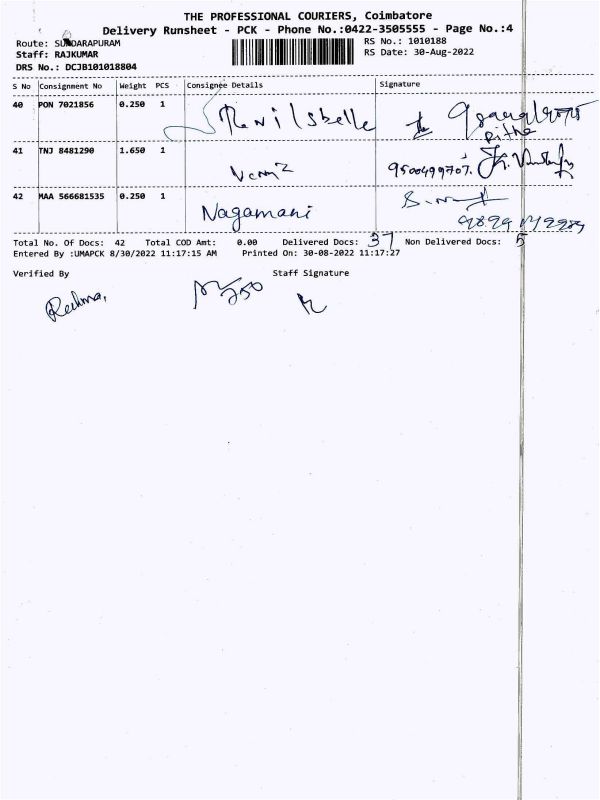 THE PROFESSIONAL COURIERS, Coimbatore
Delivery Runsheet - PCK - Phone No.:0422-3505555 - Page No.:4
Route: SUNDARAPURAM
RS No.: 1010188
Staff: RAJKUMAR
RS Date: 30-Aug-2022
DRS No.: DCJB101018804
S No Consignment No Weight PCS Consignee Details Signature
40 PON 7021856 0.250 1
41 TNJ 8481290 1.650 1
9500499707.
42 MAA 566681535 0.250 1 Nagamani
Total No. Of Docs: 42 Total COD Amt: 0.00 Delivered Docs: 37 Non Delivered Docs: 5
Entered By :UMAPCK 8/30/2022 11:17:15 AM Printed On: 30-08-2022 11:17:27
Verified By Staff Signature